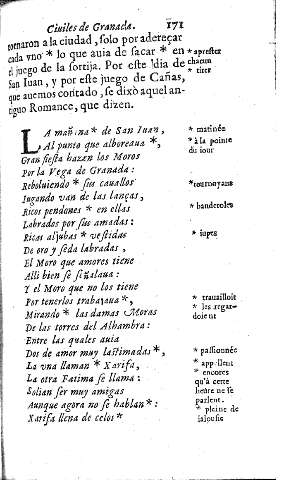 Ciuiles de Granada. 171
tornaron a la ciudad, solo por adereçar
cada vno * lo que auia de sacar * en * aprester
el juego de la sortija. Por este dia de chacun
San Iuan, y por este juego de Cañas, * tirer
que auemos contado, se dixò aquel an-
tiguo Romance, que dizen.
LA mañana * de San Iuan, * matinée
Al punto que alboreaua *, * à la pointe
Gran fiesta hazen los Moros du iour
Por la Vega de Granada:
Reboluiendo * sus cauallos * tournoyans
Jugando van de las lanças,
Ricos pendones * en ellas * banderoles
Labrados por sus amadas:
Ricas aljubas * vestidas * jupes
De oro y seda labradas,
El Moro que amores tiene
Alli bien se señalaua:
Y el Moro que no los tiene
Por tenerlos trabayaua *, * trauailloit
Mirando * las damas Moras * les regar-
De las torres del Alhambra: doient
Entre las quales auia
Dos de amor muy lastimadas *, * passionnée
La vna llaman * Xarifa, * appellent
La otra Fatima se llama: * encores
Solian ser muy amigas qu'à cette
Aunque agora no se hablan * : heure ne se
parlent.
Xarifa llena de celos * * pleine de
jalousie